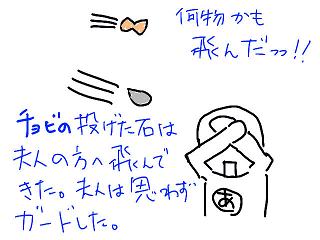 何物かも
飛んだっっ!!
チョビの投げた石は
夫人の方へ飛んで
きた。夫人は思わず
ガードした。
あ